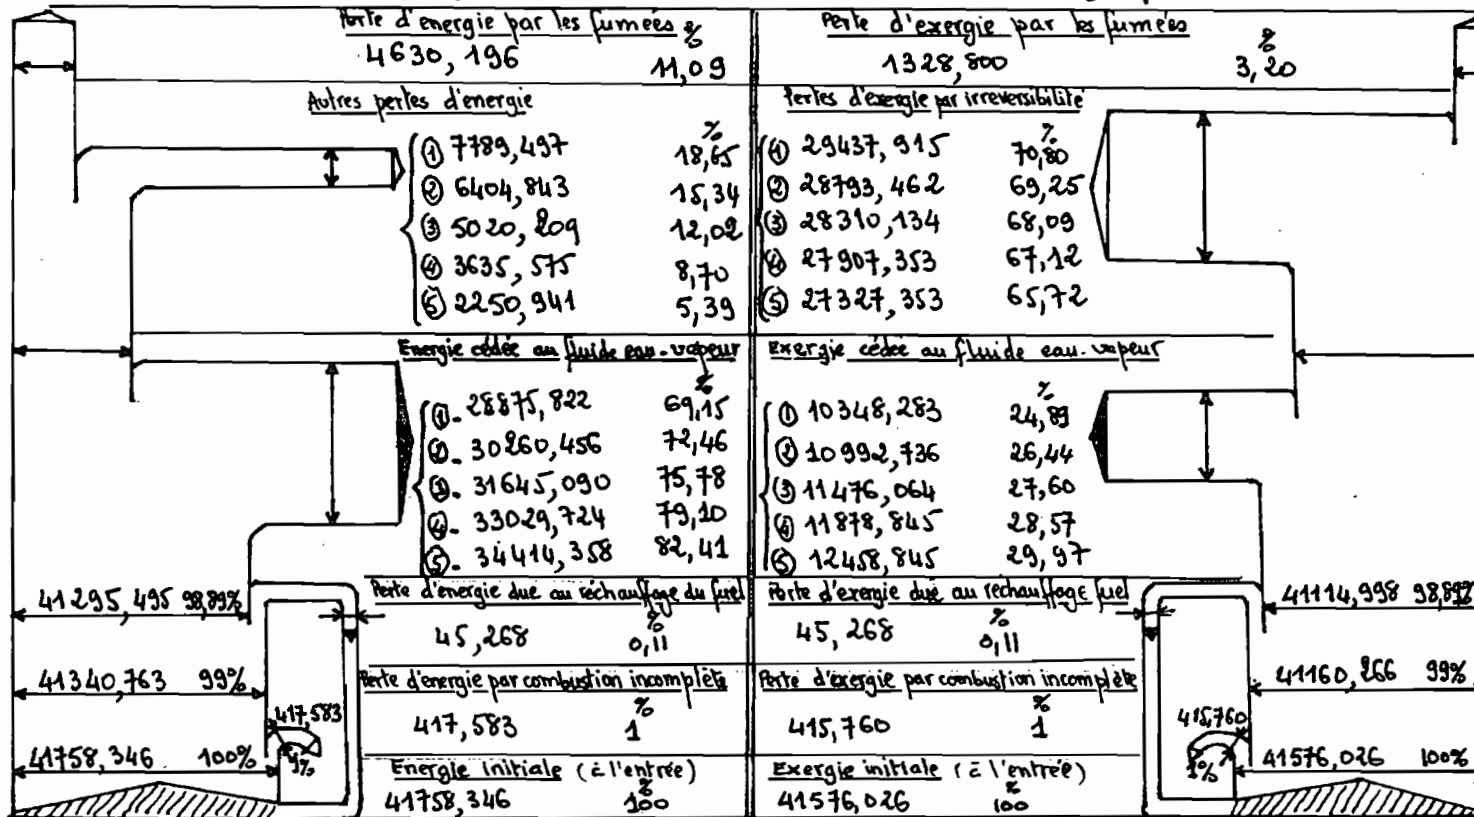 Perte d'energie par les fumées %
4630,196 11,09
Autres pertes d'energie
%
① 7789,497 18,65
② 6404,843 15,34
③ 5020,209 12,02
④ 3635,575 8,70
⑤ 2250,941 5,39
Energie cédée au fluide eau-vapeur
%
①- 28875,822 69,15
②- 30260,456 72,46
③- 31645,090 75,78
④- 33029,724 79,10
⑤- 34414,358 82,41
Perte d'énergie due au réchauffage du fuel
%
45,268 0,11
Perte d'énergie par combustion incomplète
%
417,583 1
Energie initiale (à l'entrée)
%
41758,346 100
41295,495 98,89%
41340,763 99%
417,583
1%
41758,346 100%
Perte d'exergie par les fumées
%
1328,800 3,20
Pertes d'exergie par irreversibilité
%
① 29437,915 70,80
② 28793,462 69,25
③ 28310,134 68,09
④ 27907,353 67,12
⑤ 27327,353 65,72
Exergie cédée au fluide eau-vapeur
%
① 10348,283 24,89
② 10992,736 26,44
③ 11476,064 27,60
④ 11878,845 28,57
⑤ 12458,845 29,97
Perte d'exergie due au rechauffage fuel
%
45,268 0,11
Perte d'exergie par combustion incomplète
%
415,760 1
Exergie initiale (à l'entrée)
%
41576,026 100
41114,998 98,89%
41160,266 99%
415,760
1%
41576,026 100%